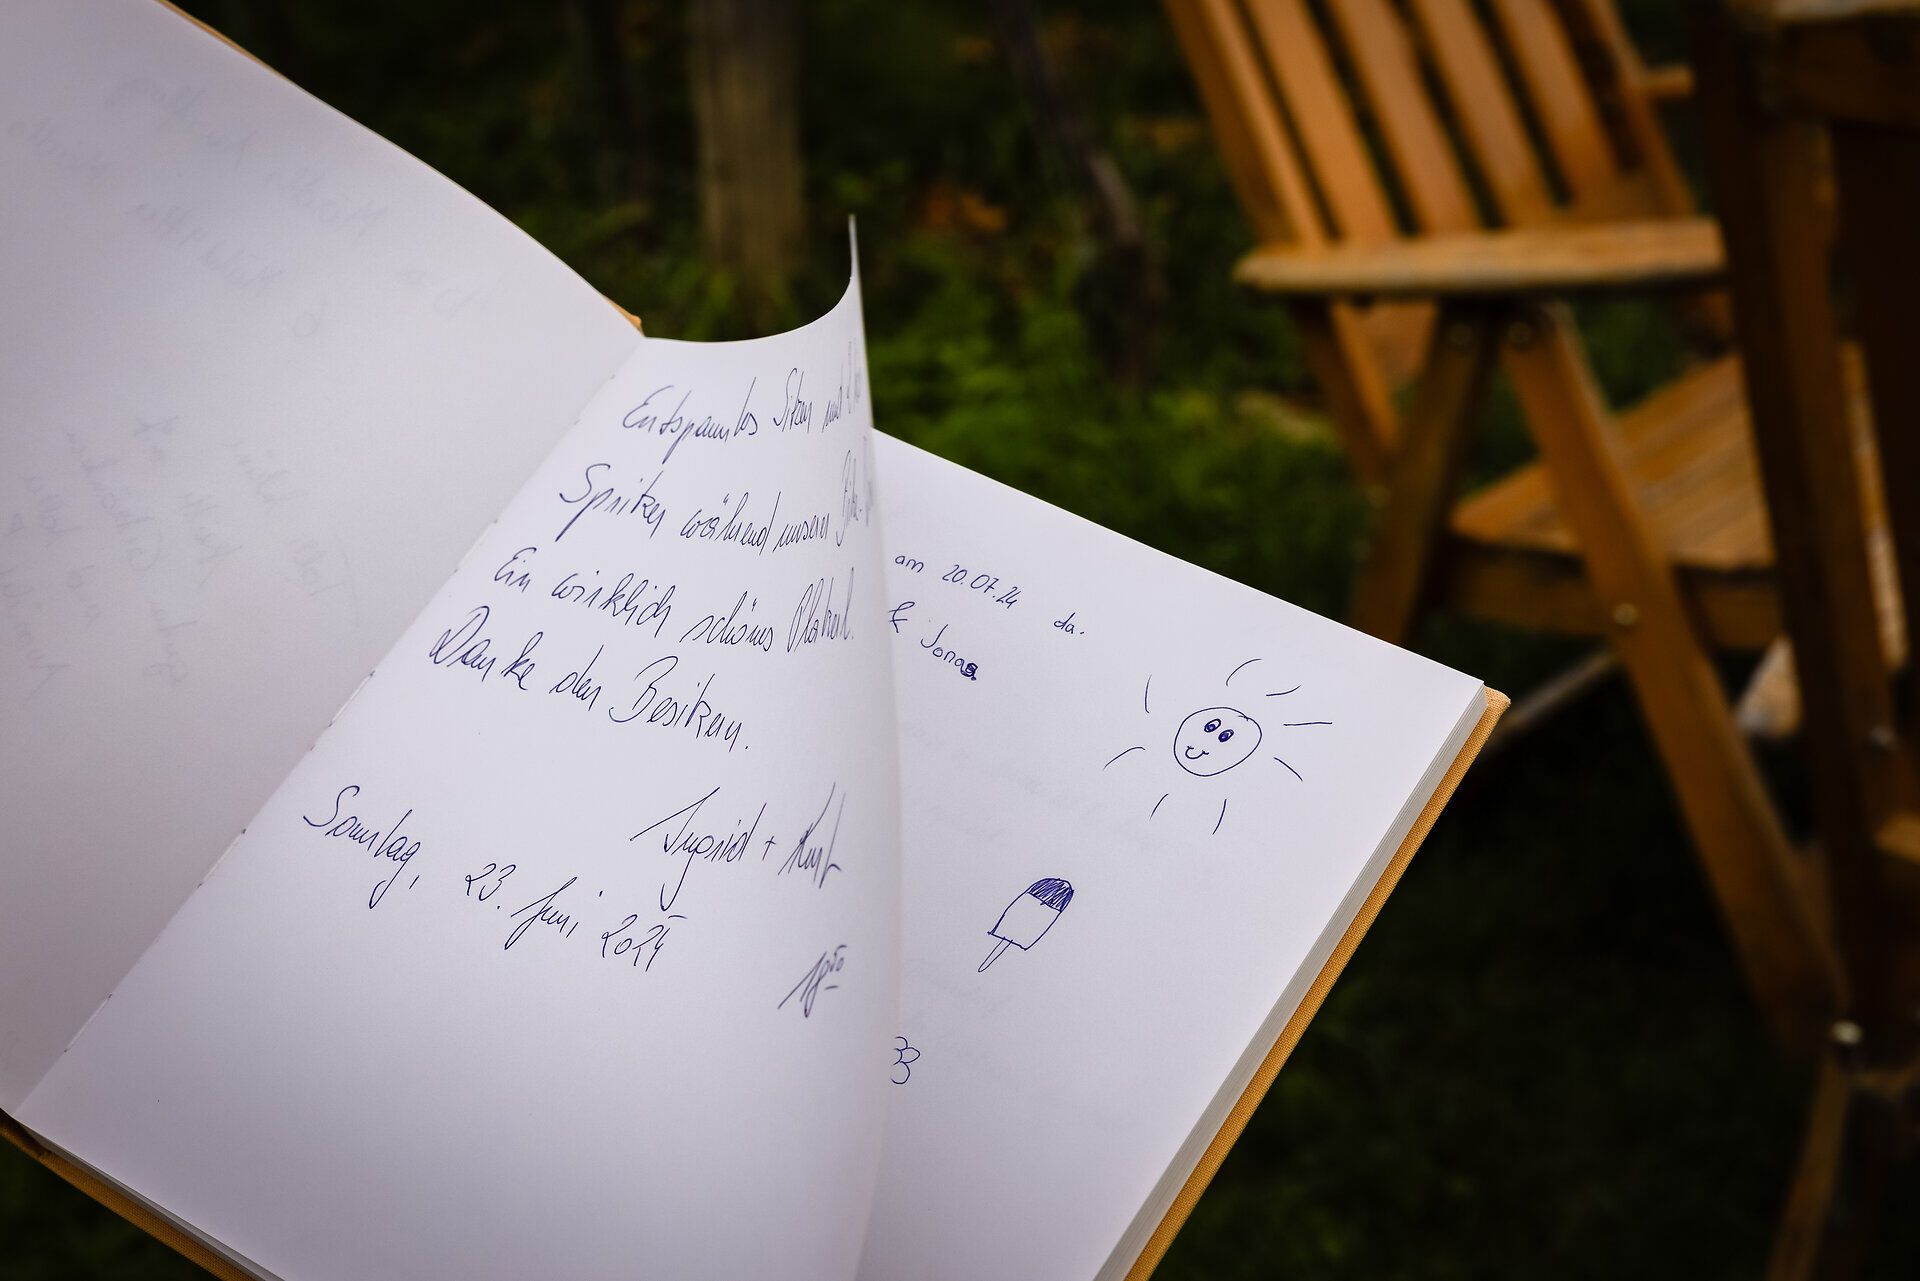 Entspanntes Sitzen und
Spritzer während unserer
Ein wirklich schönes Platzerl.
Danke den Besitzern.
Ingrid + Kurt
Sonntag, 23. Juni 2024
18⁵⁰
am 20.07.24 da.
& Jonas.